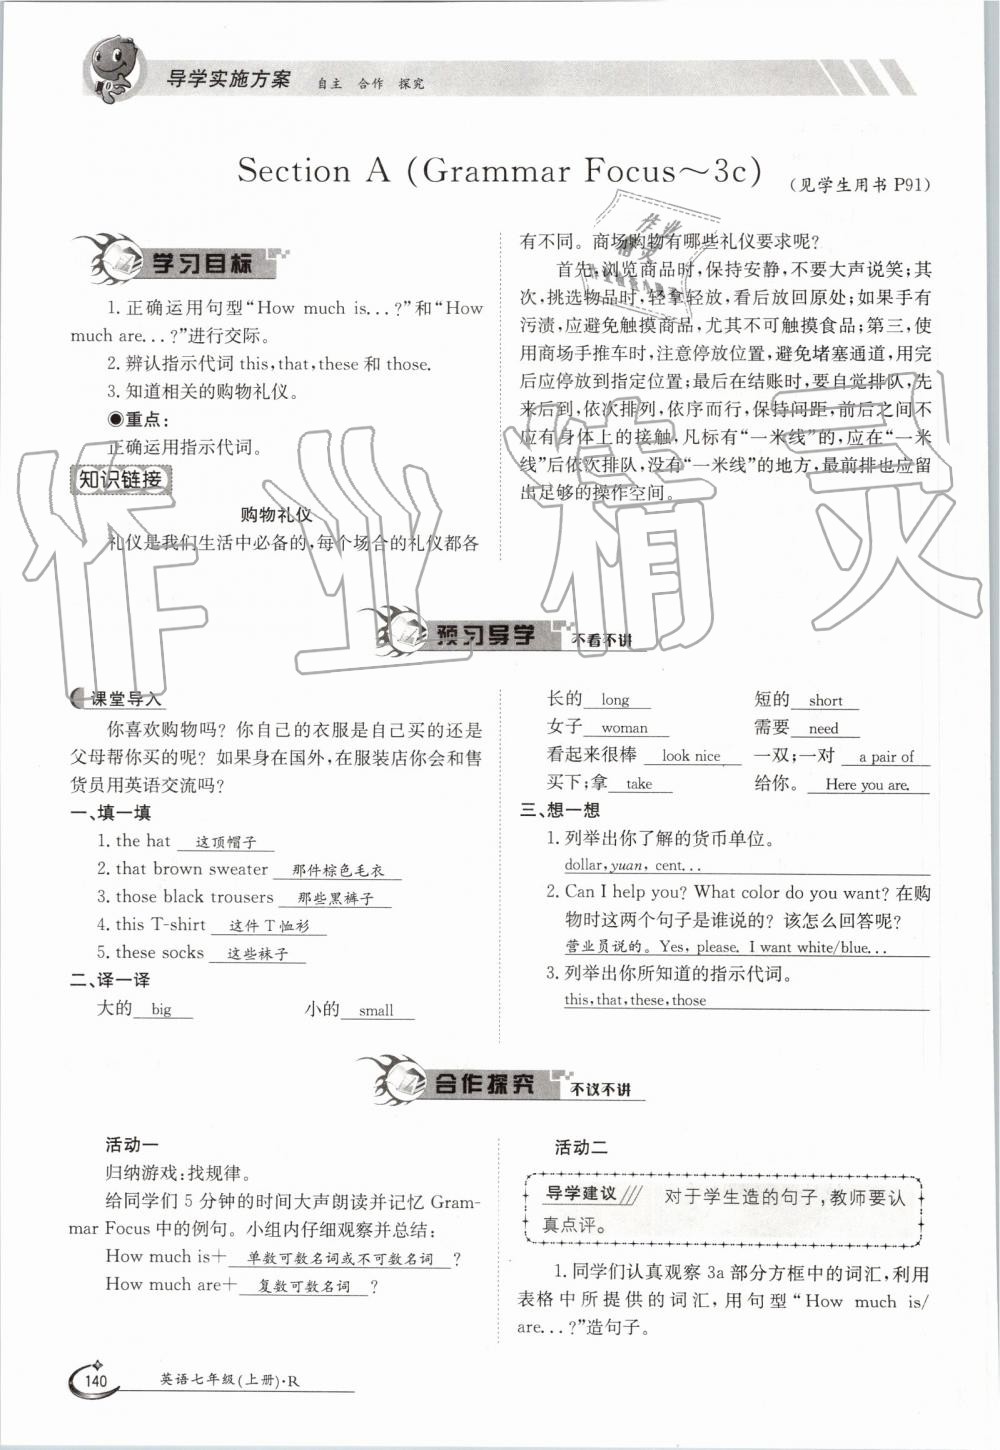 导学实施方案 自主 合作 探究
Section A (Grammar Focus～3c) (见学生用书 P91)
学习目标
1. 正确运用句型“How much is...?”和“How
much are...?”进行交际。
2. 辨认指示代词 this, that, these 和 those.
3. 知道相关的购物礼仪。
●重点:
正确运用指示代词。
知识链接
购物礼仪
礼仪是我们生活中必备的,每个场合的礼仪都各
有不同。商场购物有哪些礼仪要求呢?
首先,浏览商品时,保持安静,不要大声说笑;其
次,挑选物品时,轻拿轻放,看后放回原处;如果手有
污渍,应避免触摸商品,尤其不可触摸食品;第三,使
用商场手推车时,注意停放位置,避免堵塞通道,用完
后应停放到指定位置;最后在结账时,要自觉排队,先
来后到,依次排列,依序而行,保持间距,前后之间不
应有身体上的接触,凡标有“一米线”的,应在“一米
线”后依次排队,没有“一米线”的地方,最前排也应留
出足够的操作空间。
作业精灵
预习导学 不看不讲
课堂导入
你喜欢购物吗? 你自己的衣服是自己买的还是
父母帮你买的呢? 如果身在国外,在服装店你会和售
货员用英语交流吗?
一、填一填
1. the hat 这顶帽子
2. that brown sweater 那件棕色毛衣
3. those black trousers 那些黑裤子
4. this T-shirt 这件T恤衫
5. these socks 这些袜子
二、译一译
大的 big 小的 small
长的 long 短的 short
女子 woman 需要 need
看起来很棒 look nice 一双;一对 a pair of
买下;拿 take 给你。 Here you are.
三、想一想
1. 列举出你了解的货币单位。
dollar, yuan, cent...
2. Can I help you? What color do you want? 在购
物时这两个句子是谁说的? 该怎么回答呢?
营业员说的。Yes, please. I want white/blue...
3. 列举出你所知道的指示代词。
this, that, these, those
合作探究 不议不讲
活动一
归纳游戏:找规律。
给同学们 5 分钟的时间大声朗读并记忆 Gram-
mar Focus 中的例句。小组内仔细观察并总结:
How much is+ 单数可数名词或不可数名词 ?
How much are+ 复数可数名词 ?
活动二
导学建议 对于学生造的句子,教师要认
真点评。
1. 同学们认真观察 3a 部分方框中的词汇,利用
表格中所提供的词汇,用句型“How much is/
are...?”造句子。
140 英语七年级(上册)·R